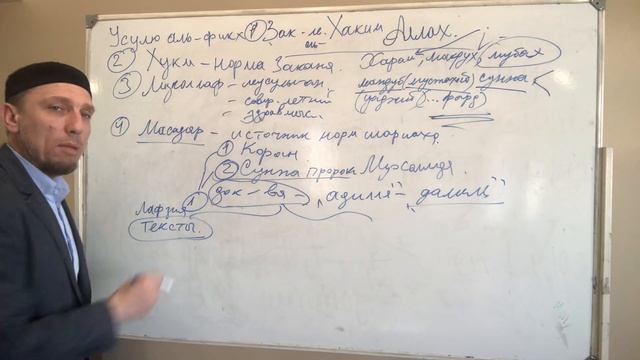 Усулю аль-фикх ① Зак-ль Хаким Аллах.
аль-
② Хукм - норма Закона. Харам, макрух, мубах
③ Мукаллаф - мусульман. мандуб (мустахаб) сунна
- совер. летний (ваджиб) ... фард
- здравмысл.
④ Масадар - источник норм шариата.
① Коран.
② Сунна пророка Мухаммада.
① док-ва - „адилля" - „далиль"
Лафзия
Тексты.